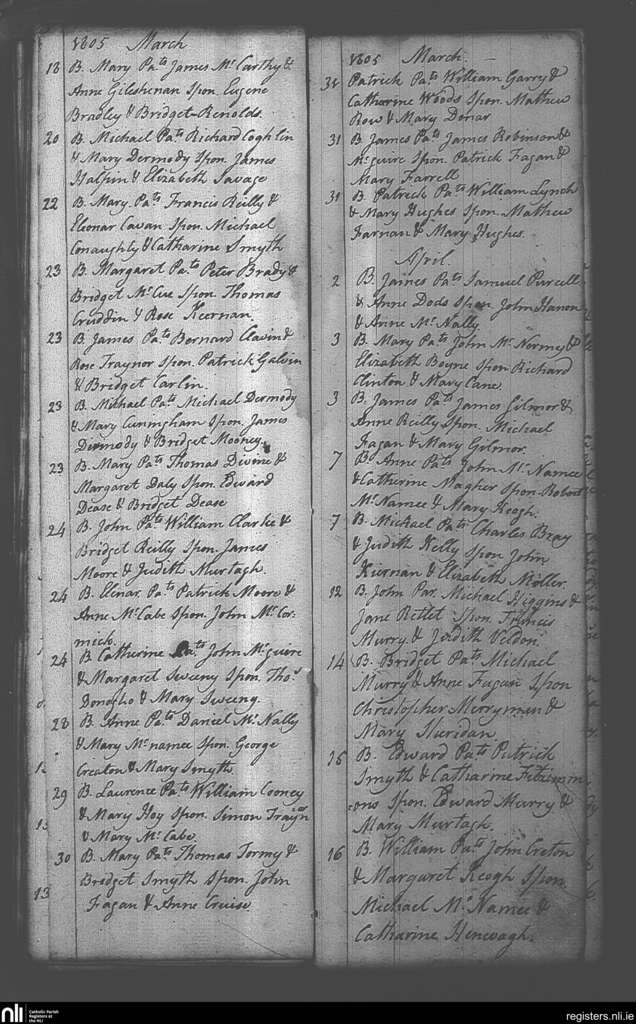 1805 March
18 B. Mary Pats James Mc Carthy &
Anne Gileshenan Spon. Eugene
Bradley & Bridget Renolds.
20 B. Michael Pats Richard Coghlin
& Mary Dermody Spon. James
Halpin & Elizabeth Savage
22 B. Mary Pats Francis Reilly &
Eleonar Cavan Spon. Michael
Conaughty & Catharine Smyth
23 B. Margaret Pats Peter Brady &
Bridget Mc Cue Spon. Thomas
Cruddin & Rose Keernan.
23 B. James Pats Bernard Clavin &
Rose Traynor Spon. Patrick Galvin
& Bridget Carlin.
23 B. Michael Pats Michael Dermody
& Mary Cunningham Spon. James
Dermody & Bridget Mooney.
23 B. Mary Pats Thomas Divine &
Margaret Daly Spon. Edward
Dease & Bridget Dease
24 B. John Pats William Clarke &
Bridget Reilly Spon. James
Moore & Judith Murtagh.
24 B. Elinar Pats Patrick Moore &
Anne Mc Cabe Spon. John Mc Cor-
mick.
24 B Catherine Pats John Mc guire
& Margaret Sweeny Spon. Thos
Donogho & Mary Sweeny.
28 B. Anne Pats Daniel Mc Nally
& Mary Mc namee Spon. George
Creaton & Mary Smyth
29 B. Laurence Pats William Cooney
& Mary Hoy Spon. Simon Traynr
& Mary Mc Cabe.
30 B. Mary Pats Thomas Tormy &
Bridget Smyth Spon. John
13 Fagan & Anne Cruise.
1805 March.
31 Patrick Pats William Garry &
Catherine Woods Spon. Mathew
Row & Mary
31 B James Pats James Robinson &
Mc guire Spon. Patrick Fagan &
Mary Farrell
31 B. Patrick Pats William Lynch
& Mary Hughes Spon. Mathew
Farnan & Mary Hughes.
April
2 B. James Pats Samuel Purcell
& Anne Dods Spon. John Hanon
& Anne Mc Nally.
3 B. Mary Pats John Mc Normey &
Elizabeth Boyne Spon Richard
Clinton & Mary Cane.
3 B. James Pats James Gilmor &
Anne Reilly Spon. Michael
Fagan & Mary Gilmor.
7 B. Anne Pats John Mc Namee
& Catherine Magher Spon. Robert
Mc Namee & Mary Keogh.
7 B. Michael Pats Charles Bray
& Judith Kelly Spon John
Kiernan & Elizabeth Moller.
12 B. John Par. Michael Higgins &
Jane Spon. Francis
Murry & Judith Veldon.
14 B. Bridget Pats Michael
Murry & Anne Fagan Spon
Christopher Merryman &
Mary Sheridan.
15 B. Edward Pats Patrick
Smyth & Catharine Fitzsimm
-ons Spon. Edward Murry &
Mary Murtagh.
16 B. William Pats John Creton
& Margaret Keogh Spon.
Michael Mc Namee &
Catharine
nli
Catholic Parish
Registers at
the NLI
registers.nli.ie